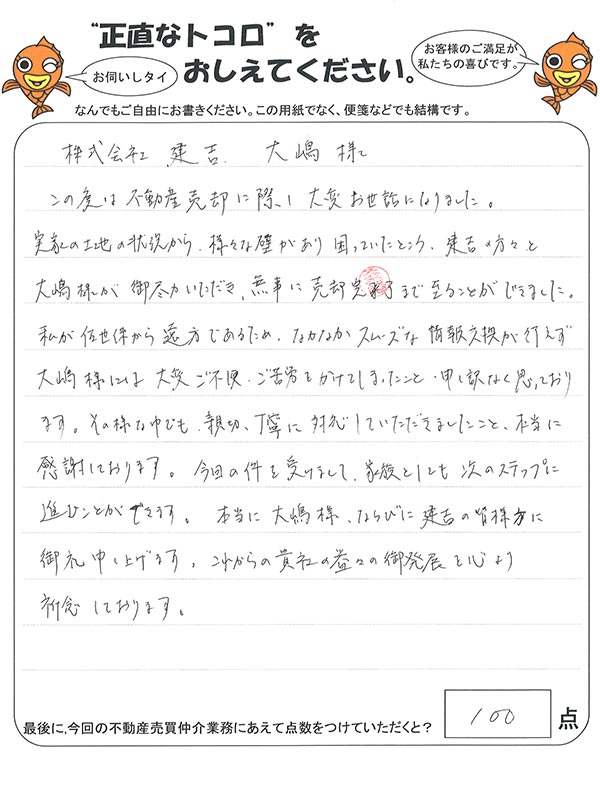 “正直なトコロ”を
おしえてください。
お伺いしタイ
お客様のご満足が
私たちの喜びです。
なんでもご自由にお書きください。この用紙でなく、便箋などでも結構です。
株式会社 建吉 大嶋様
この度は不動産売却に際し大変お世話になりました。
実家の土地の状況から、様々な壁があり困っていたところ、建吉の方々と
大嶋様が御尽力いただき、無事に売却完了まで至ることができました。
私が 遠方であるため、なかなかスムーズな情報交換が行えず
大嶋様には大変ご不便・ご苦労をかけてしまったこと、申し訳なく思っており
ます。その様な中でも、親切、丁寧に対応していただきましたこと、本当に
感謝しております。今回の件を受けまして、家族としても次のステップに
進むことができます。本当に大嶋様、ならびに建吉の皆様方に
御礼申し上げます。これからの貴社の益々の御発展を心より
祈念しております。
最後に、今回の不動産売買仲介業務にあえて点数をつけていただくと?
100 点